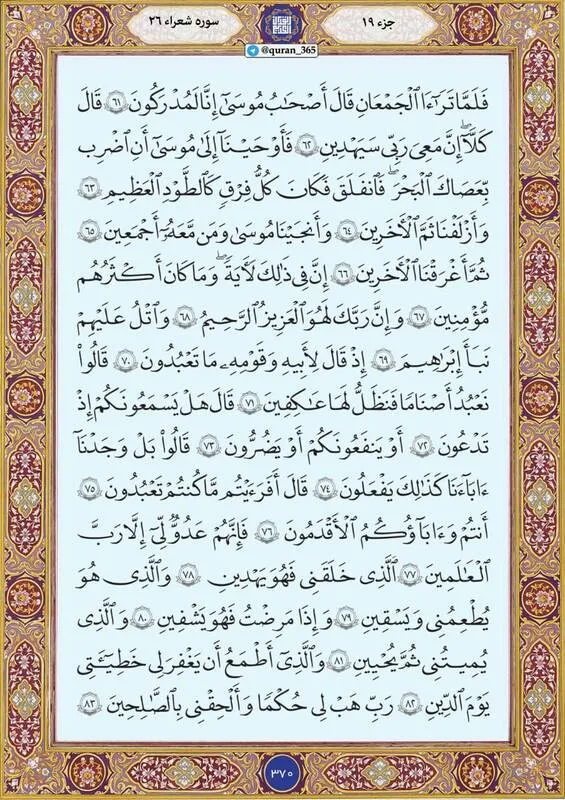 جزء ۱۹
سوره شعراء ۲۶
@quran_365
فَلَمَّا تَرَٰٓءَا ٱلْجَمْعَانِ قَالَ أَصْحَٰبُ مُوسَىٰٓ إِنَّا لَمُدْرَكُونَ ۶۱ قَالَ
كَلَّآ ۖ إِنَّ مَعِىَ رَبِّى سَيَهْدِينِ ۶۲ فَأَوْحَيْنَآ إِلَىٰ مُوسَىٰٓ أَنِ ٱضْرِب
بِّعَصَاكَ ٱلْبَحْرَ ۖ فَٱنفَلَقَ فَكَانَ كُلُّ فِرْقٍ كَٱلطَّوْدِ ٱلْعَظِيمِ ۶۳
وَأَزْلَفْنَا ثَمَّ ٱلْءَاخَرِينَ ۶۴ وَأَنجَيْنَا مُوسَىٰ وَمَن مَّعَهُۥٓ أَجْمَعِينَ ۶۵
ثُمَّ أَغْرَقْنَا ٱلْءَاخَرِينَ ۶۶ إِنَّ فِى ذَٰلِكَ لَءَايَةً ۖ وَمَا كَانَ أَكْثَرُهُم
مُّؤْمِنِينَ ۶۷ وَإِنَّ رَبَّكَ لَهُوَ ٱلْعَزِيزُ ٱلرَّحِيمُ ۶۸ وَٱتْلُ عَلَيْهِمْ
نَبَأَ إِبْرَٰهِيمَ ۶۹ إِذْ قَالَ لِأَبِيهِ وَقَوْمِهِۦ مَا تَعْبُدُونَ ۷۰ قَالُوا۟
نَعْبُدُ أَصْنَامًا فَنَظَلُّ لَهَا عَٰكِفِينَ ۷۱ قَالَ هَلْ يَسْمَعُونَكُمْ إِذْ
تَدْعُونَ ۷۲ أَوْ يَنفَعُونَكُمْ أَوْ يَضُرُّونَ ۷۳ قَالُوا۟ بَلْ وَجَدْنَآ
ءَابَآءَنَا كَذَٰلِكَ يَفْعَلُونَ ۷۴ قَالَ أَفَرَءَيْتُم مَّا كُنتُمْ تَعْبُدُونَ ۷۵
أَنتُمْ وَءَابَآؤُكُمُ ٱلْأَقْدَمُونَ ۷۶ فَإِنَّهُمْ عَدُوٌّ لِّىٓ إِلَّا رَبَّ
ٱلْعَٰلَمِينَ ۷۷ ٱلَّذِى خَلَقَنِى فَهُوَ يَهْدِينِ ۷۸ وَٱلَّذِى هُوَ
يُطْعِمُنِى وَيَسْقِينِ ۷۹ وَإِذَا مَرِضْتُ فَهُوَ يَشْفِينِ ۸۰ وَٱلَّذِى
يُمِيتُنِى ثُمَّ يُحْيِينِ ۸۱ وَٱلَّذِىٓ أَطْمَعُ أَن يَغْفِرَ لِى خَطِيٓـَٔتِى
يَوْمَ ٱلدِّينِ ۸۲ رَبِّ هَبْ لِى حُكْمًا وَأَلْحِقْنِى بِٱلصَّٰلِحِينَ ۸۳
۳۷۰